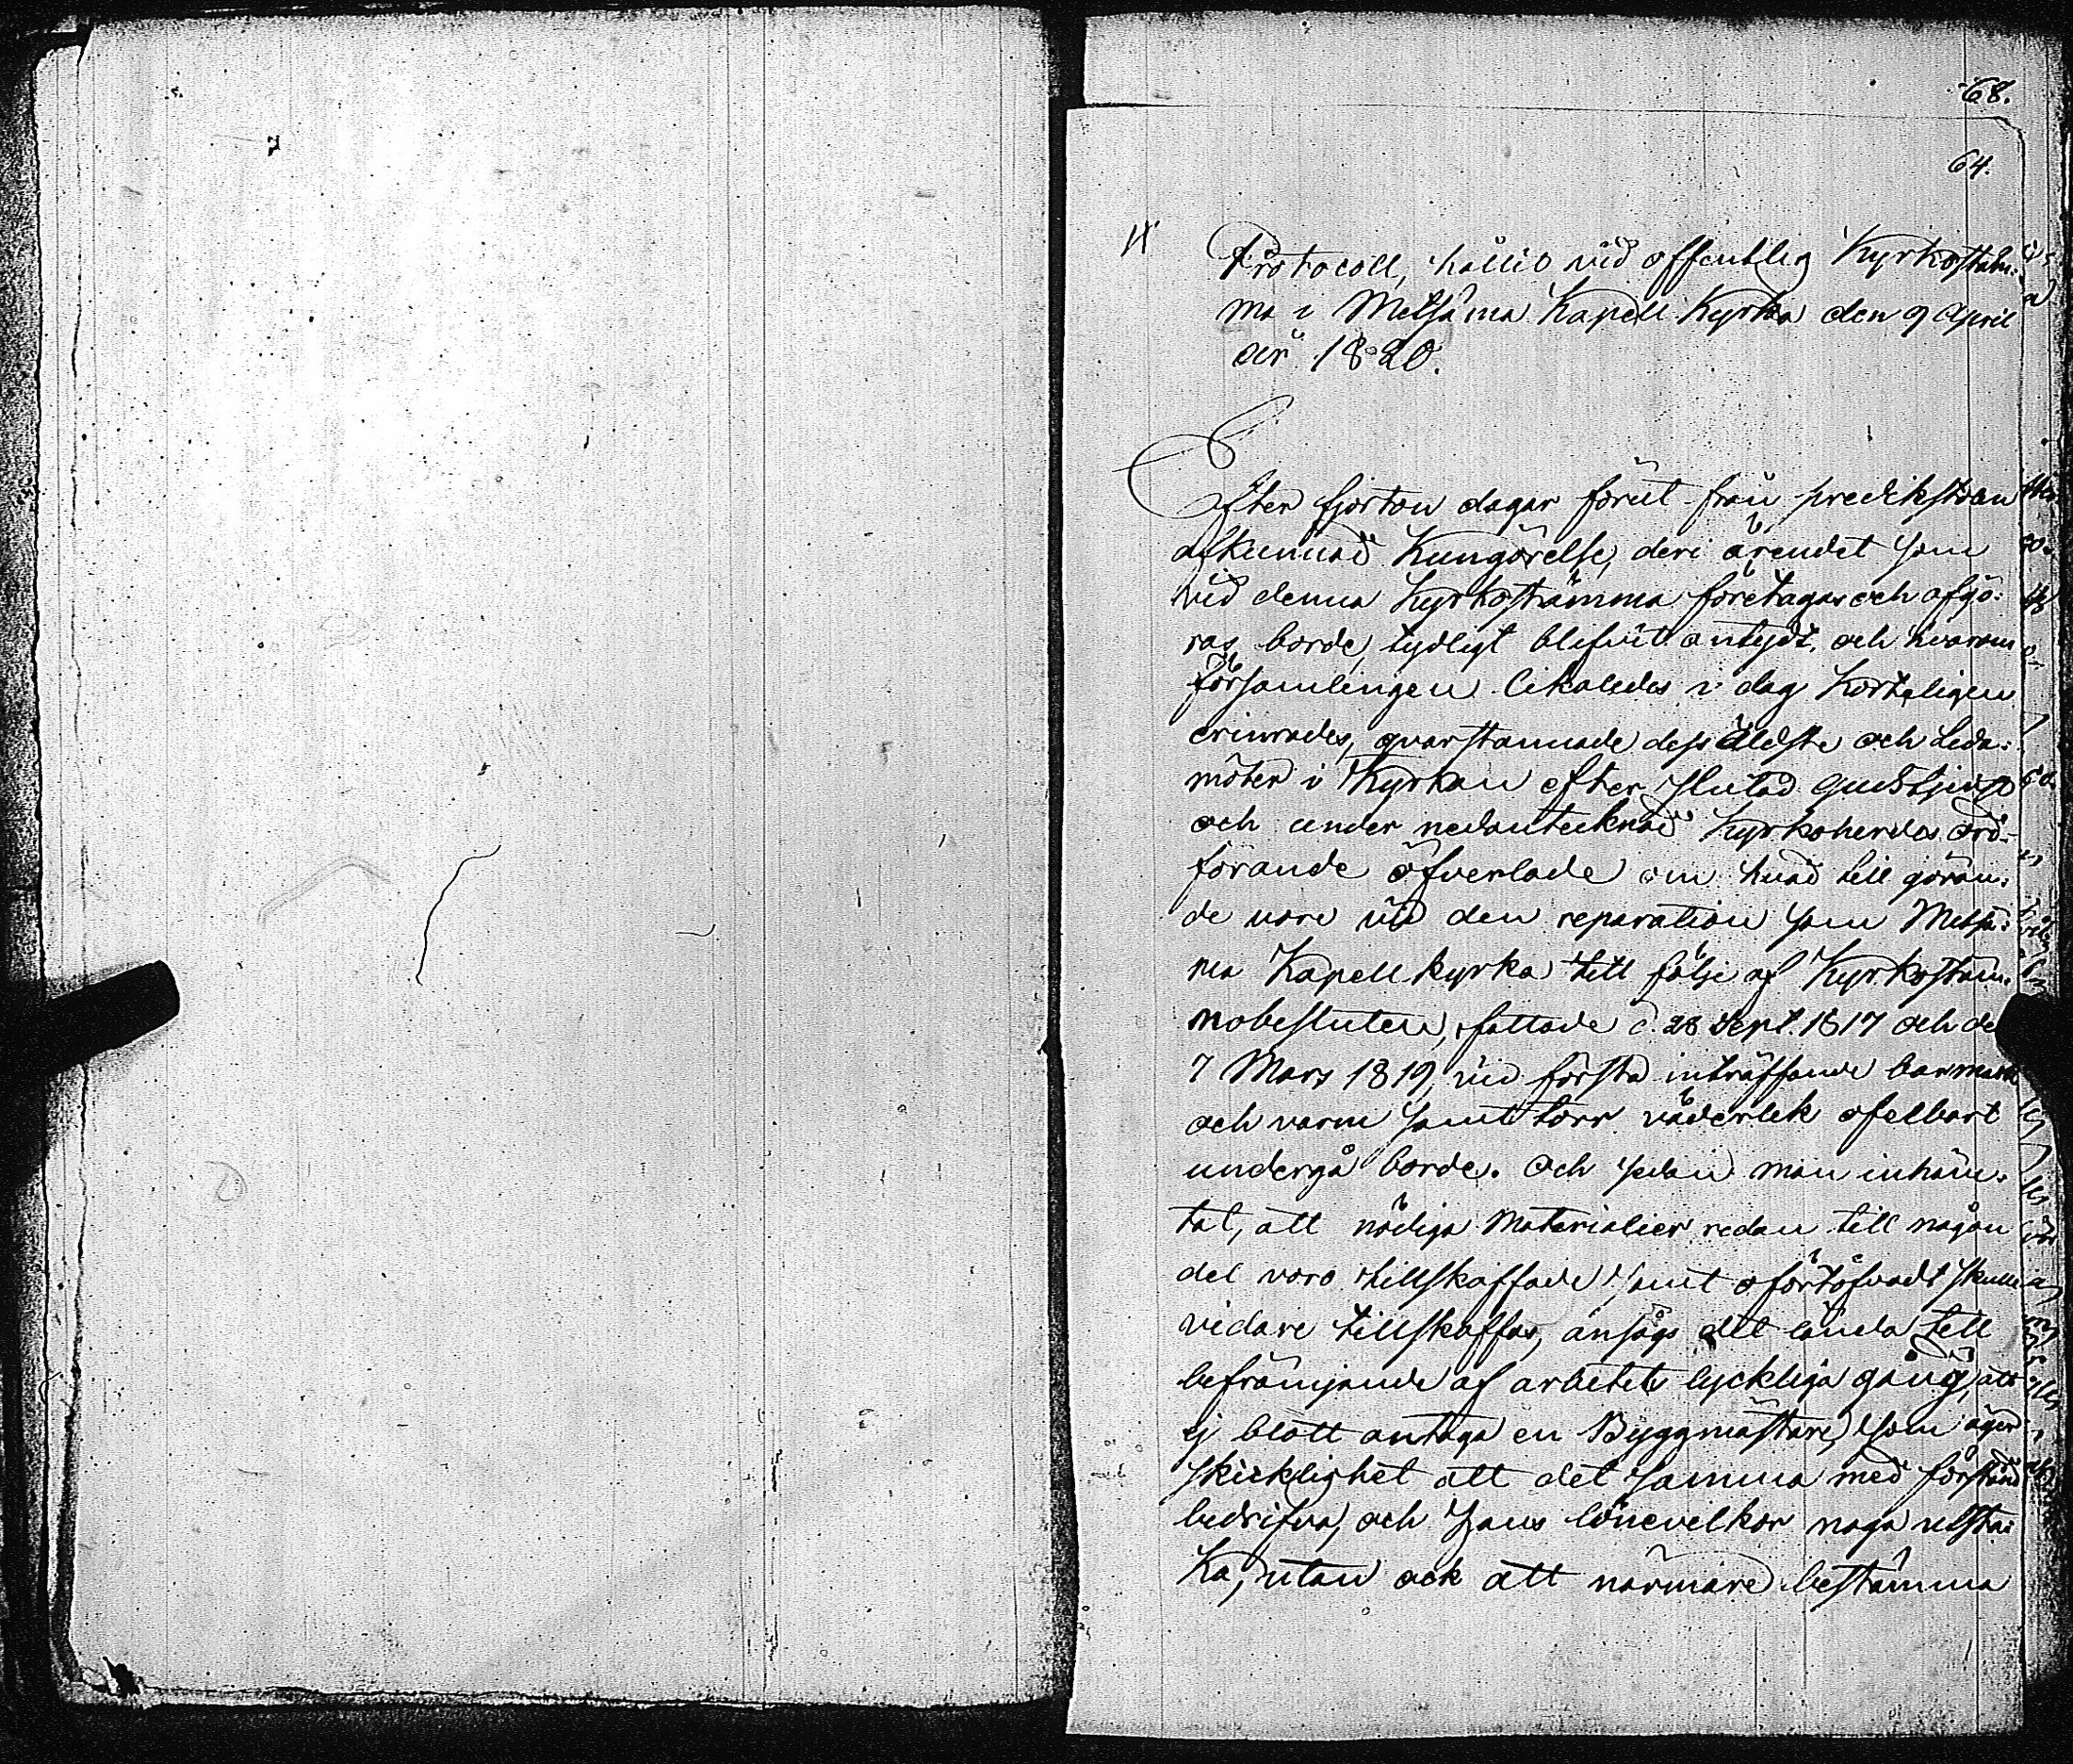 68.
64.
Protocoll, hållit vid offentlig Kyrkostäm:
ma i Metsäma Kapell Kyrka den 9 April
år 1820.
Efter fjorton dagar förut från predikstolen
afkunnad Kungörelse, deri ärendet som
vid denna Kyrkostämma företagas och afgö:
ras borde, tydligt blifvit antydt, och hvarom
Församlingen likaledes i dag korteligen
erinrades, qvarstannade dess Äldste och Leda:
möter i Kyrkan efter slutad Gudstjenst
och under nedantecknad Kyrkoherdes ord-
förande öfverlade om hvad till göran:
de vore vid den reparation som Metsä:
ma Kapell kyrka till följe af Kyrkostäm:
mobesluten, fattade d. 28 Sept. 1817 och de
7 Mars 1819, vid första inträffande barmark
och varm samt torr väderlek ofelbart
undergå borde. Och sedan man inhäm:
tat, att nödiga Materialier redan till någon
del voro tillskaffade samt ofördröfvadt skulle
vidare tillskaffas, ansågs det lända till
befrämjande af arbetets lyckliga gång, att
ej blott antaga en Byggmästare, som äger
skicklighet att det samma med förstånd
bedrifva, och hans lönevilkor noga utsta:
ka, utan ock att närmare bestämma